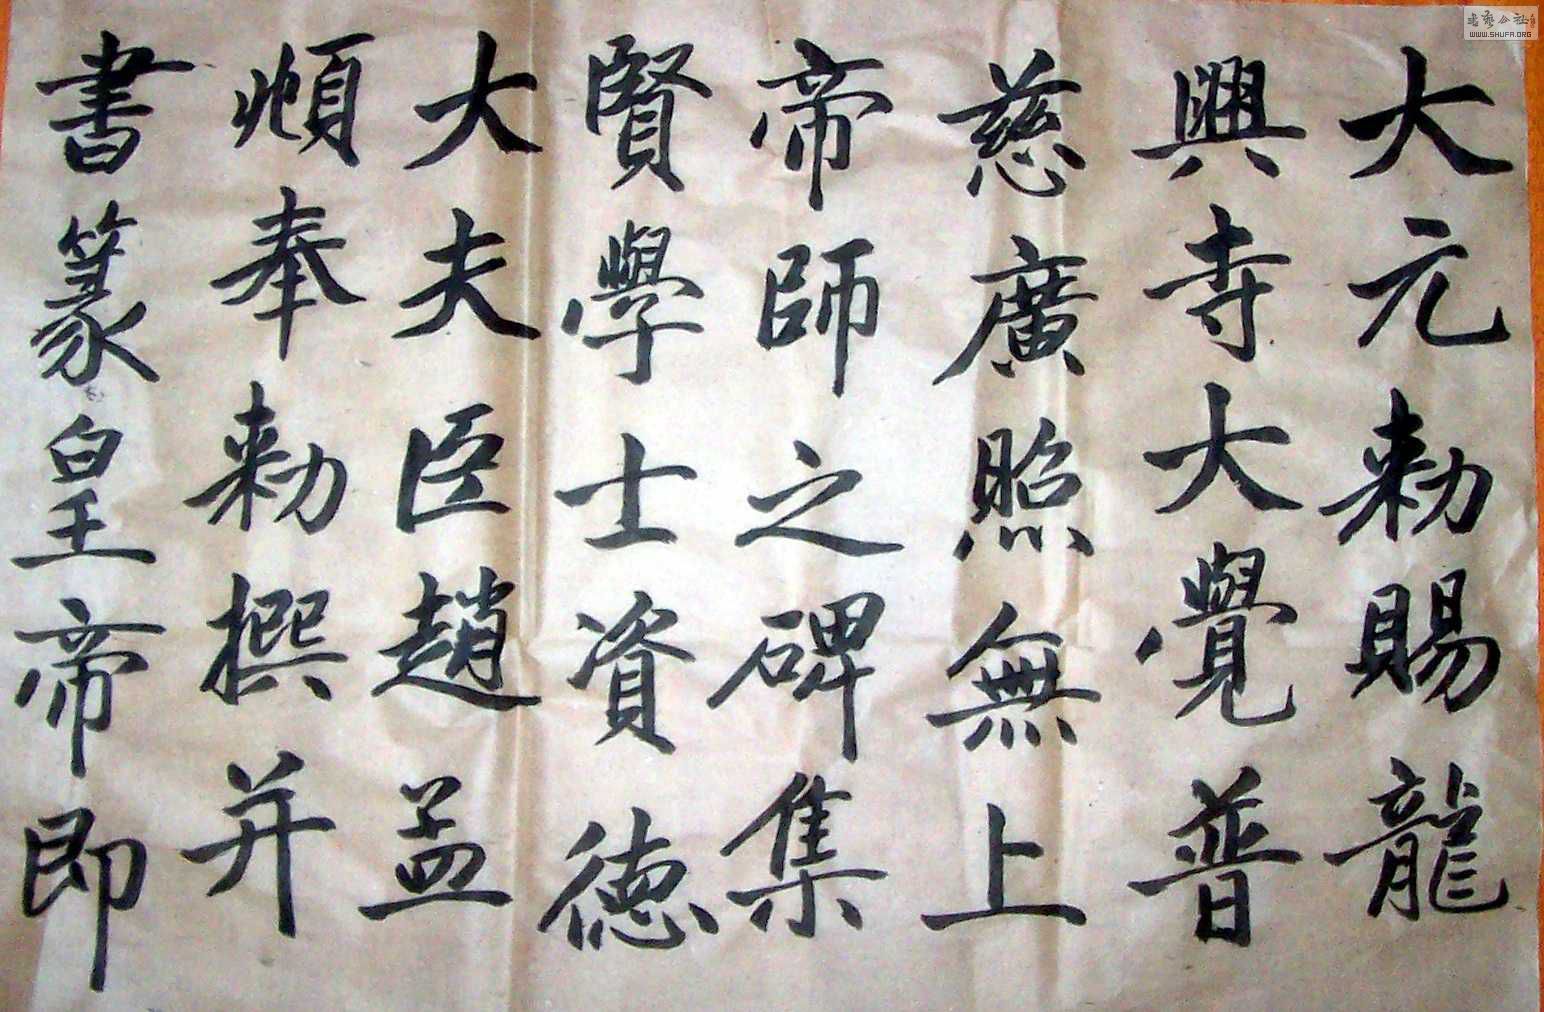 大元勅賜龍
興寺大覺普
慈廣照無上
帝師之碑集
賢學士資德
大夫臣趙孟
頫奉勅撰并
書篆皇帝即
書藝公社
WWW.SHUFA.ORG